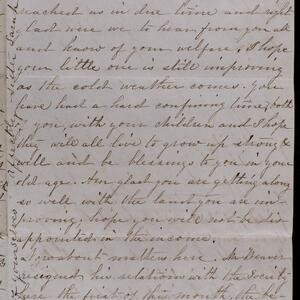 reached us in due time and right
glad were we to hear from you all
and know of your welfare, I hope
your little one is still improving
as the cold weather comes. You
have had a hard confining time, both
of you, with your children and I hope
they will all live to grow up strong &
well and be blessings to you in your
old age. Am glad you are getting along
so well with the land you are im-
proving, hope you will not be dis-
appointed in the income.
Now about matters here. Mr
resigned his relations with the Society
the first of this month the